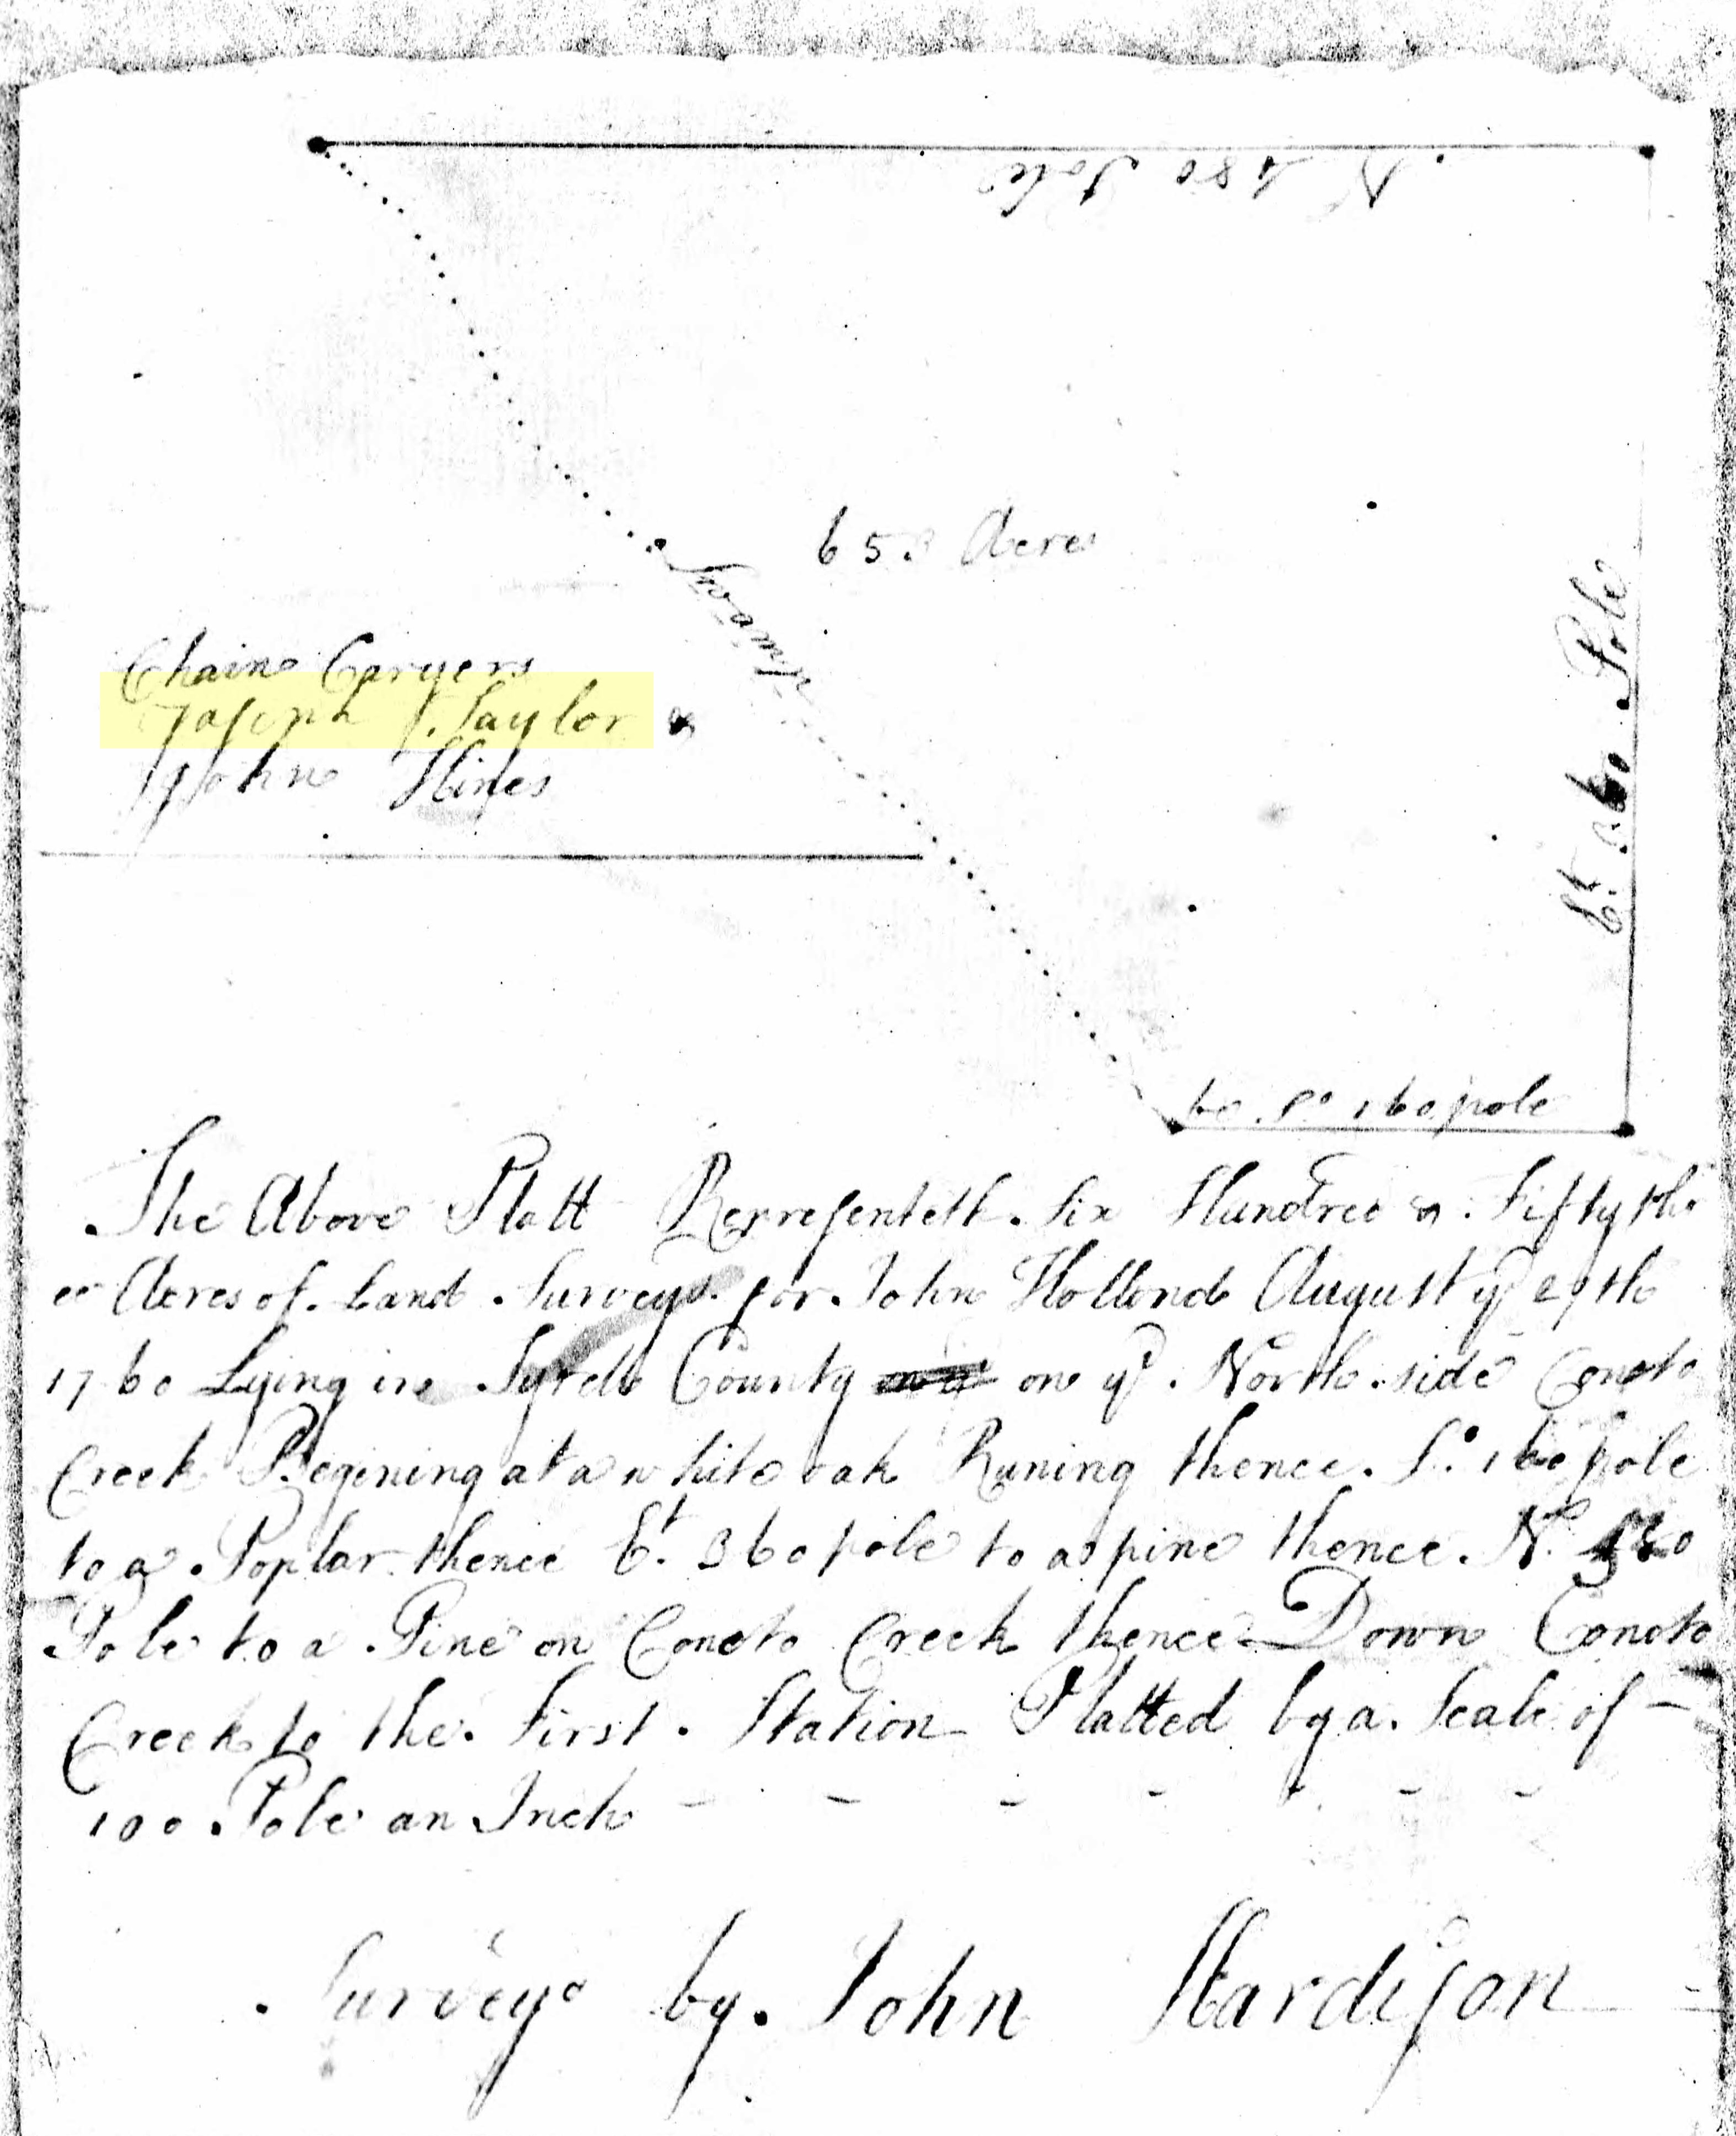 N 480 Pole
653 Acres
Swamp
Et. 360 Pole
Chain Caryers
Joseph Taylor &
John Hines
So 160 pole
The Above Platt Representeth Six Hundred & Fifty thr
ee Acres of Land Surveyd for John Hollond August ye 29th
1760 Lying in County on ye North side Coneto
Creek Begining at a white oak Runing thence So. 160 pole
to a Poplar thence Et. 360 pole to a pine thence N.
Pole to a Pine on Coneto Creek thence Down Coneto
Creek to the First Station Platted by a Scale of
100 Pole an Inch
Surveyd by John Hardison